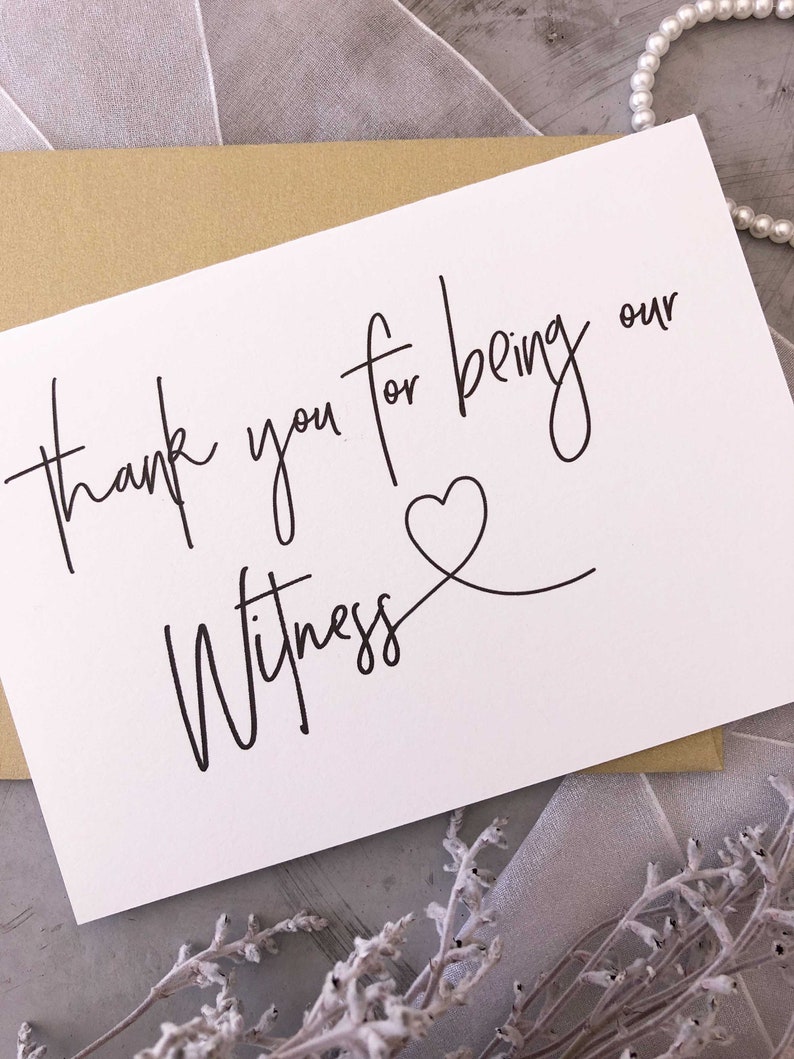 thank you for being our
Witness